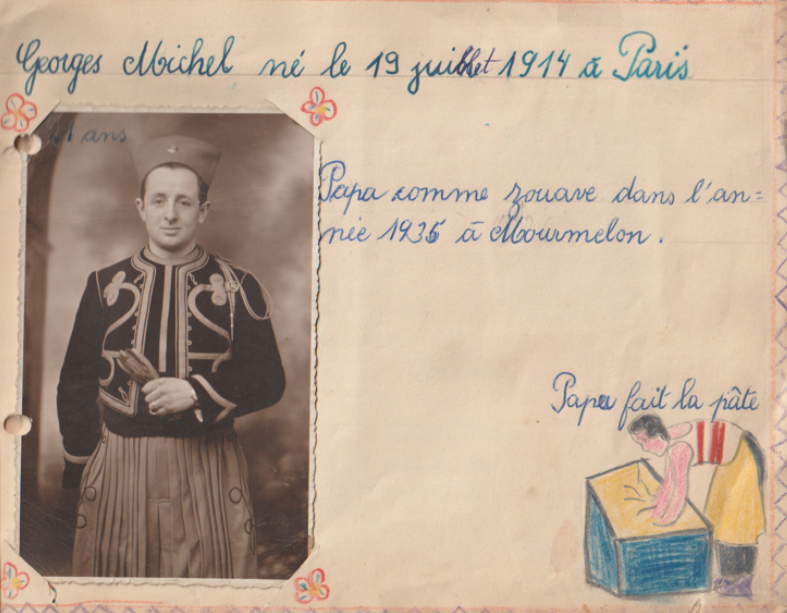 Georges Michel né le 19 juillet 1914 à Paris
21 ans
Papa comme zouave dans l'an=
née 1935 à Mourmelon.
Papa fait la pâte